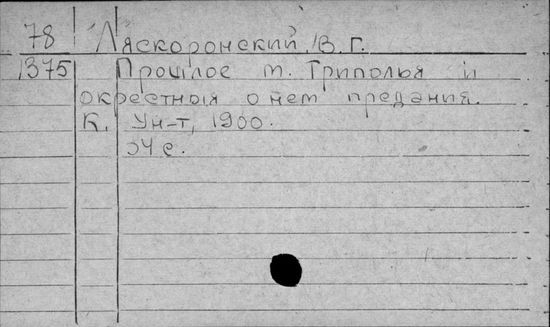 78 Ляскоронский, В. Г.
1375 Прошлое м. Триполья и
окрестныя о нем предания.
К. Ун-т, 1900.
34 с.